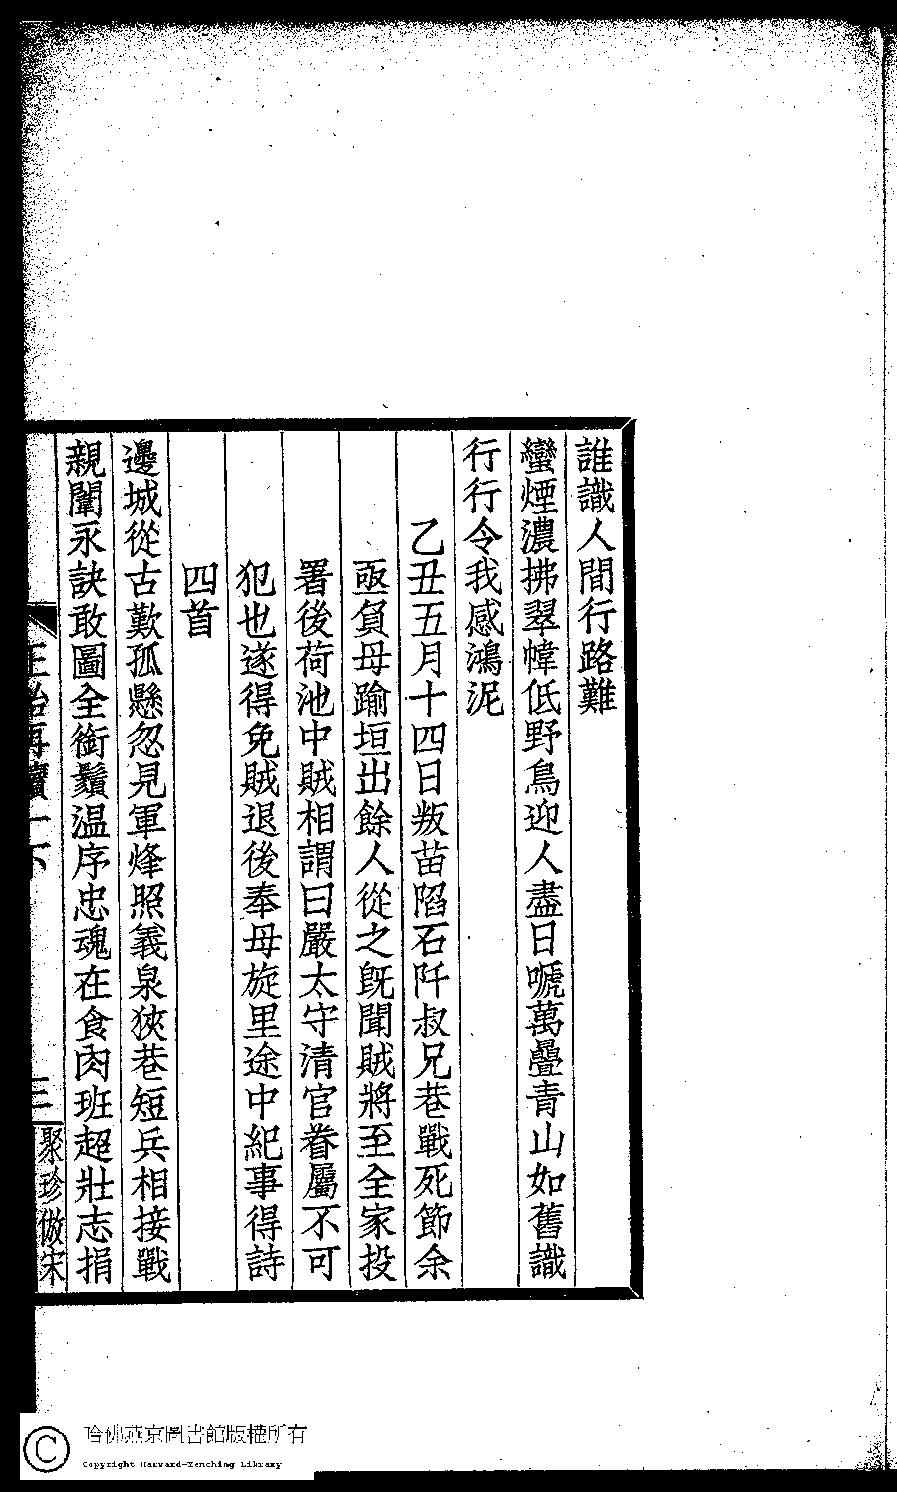 誰識人間行路難
蠻煙濃拂翠幃低野鳥迎人盡日嗁萬疊青山如舊識
行行令我感鴻泥
乙丑五月十四日叛苗陷石阡叔兄巷戰死節余
亟負母踰垣出餘人從之旣聞賊將至全家投
署後荷池中賊相謂曰嚴太守清官眷屬不可
犯也遂得免賊退後奉母旋里途中紀事得詩
四首
邊城從古歎孤懸忽見軍烽照義泉狹巷短兵相接戰
親闈永訣敢圖全銜鬚温序忠魂在食肉班超壯志捐
再續
三
聚珍倣宋
哈佛燕京圖書館版權所有
Copyright Harvard-Yenching Library